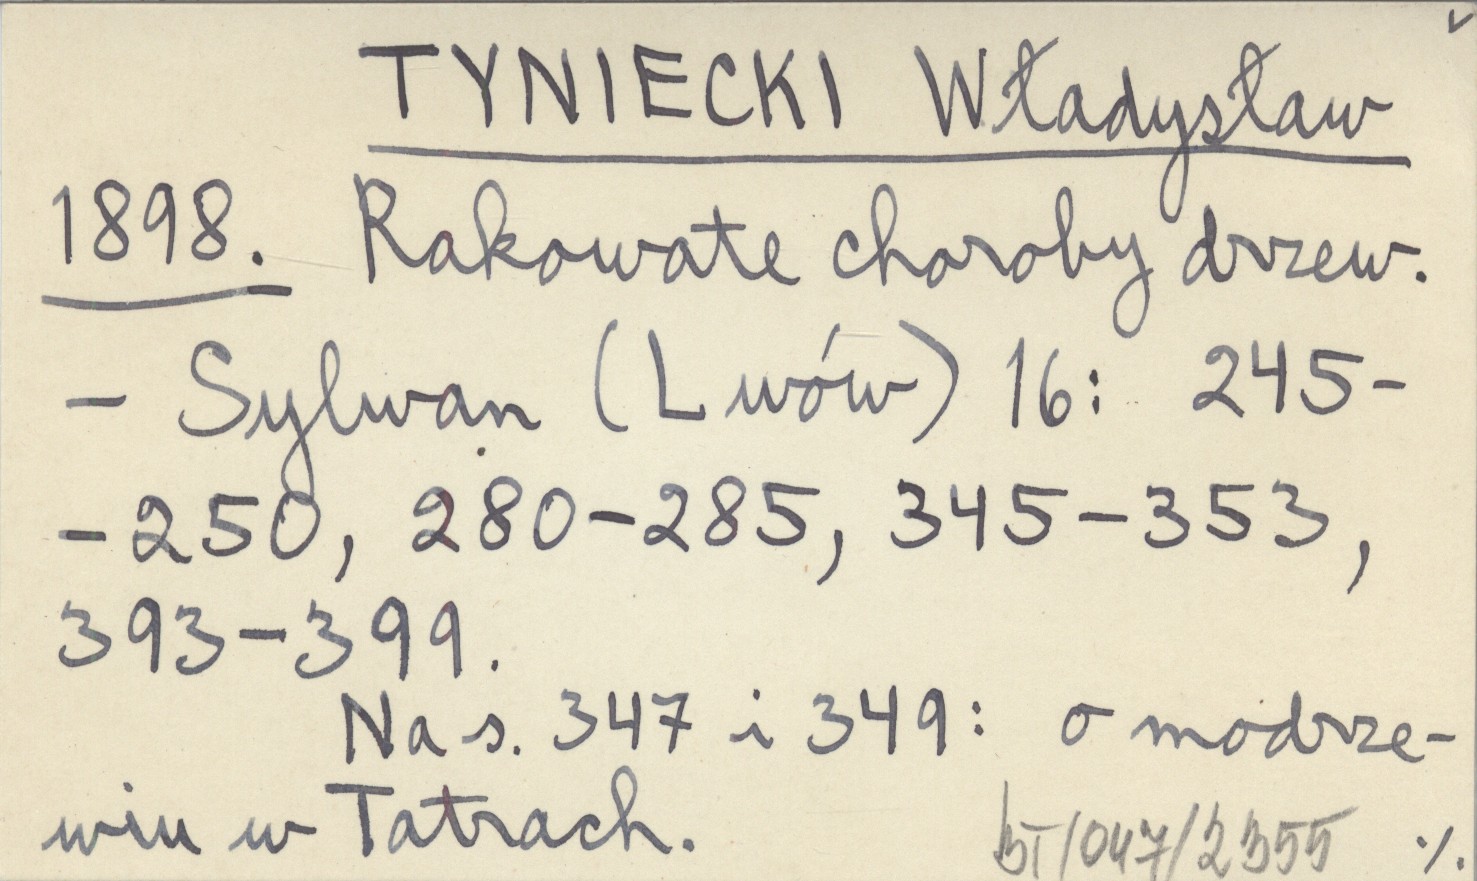 TYNIECKI Władysław
1898. Rakowate choroby drzew.
- Sylwan (Lwów) 16: 245-
-250, 280-285, 345-353,
393-399.
Na s. 347 i 349: o modrze-
wiu w Tatrach.
bT/047/2355 ./.